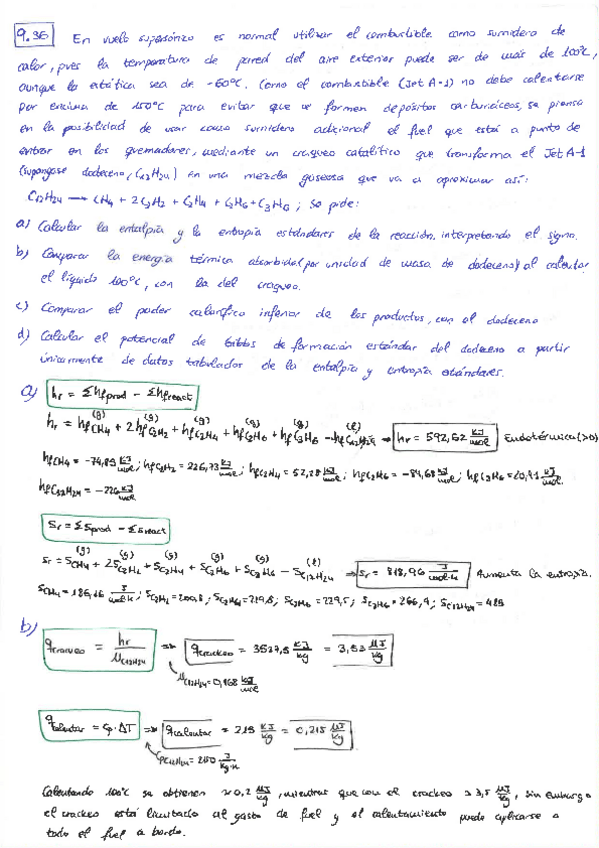 9.36 En vuelo supersónico es normal utilizar el combustible como sumidero de
calor, pues la temperatura de pared del aire exterior puede ser de más de 100°C,
aunque la estática sea de -60°C. Como el combustible (Jet A-1) no debe calentarse
por encima de 150°C para evitar que se formen depósitos carbonáceos, se piensa
en la posibilidad de usar como sumidero adicional el fuel que está a punto de
entrar en los quemadores, mediante un craqueo catalítico que transforma el Jet A-1
(supongase dodeceno, C12H24) en una mezcla gaseosa que va a aproximar así:
C12H24 → CH4 + 2C2H2 + C2H4 + C2H6 + C3H6; Se pide:
a) Calcular la entalpía y la entropía estándares de la reacción, interpretando el signo.
b) Comparar la energía térmica absorbida (por unidad de masa de dodeceno) al calentar
el líquido 100°C, con la del craqueo.
c) Comparar el poder calorífico inferior de los productos, con el dodeceno
d) Calcular el potencial de Gibbs de formación estándar del dodeceno a partir
únicamente de datos tabulados de la entalpía y entropía estándares.
a) hr = Σhfprod - Σhfreact
hr = hfCH4(g) + 2hfC2H2(g) + hfC2H4(g) + hfC2H6(g) + hfC3H6(g) - hfC12H24(l) ⇒ hr = 592,62 kJ/mol Endotérmica (>0)
hfCH4 = -74,85 kJ/mol; hfC2H2 = 226,73 kJ/mol; hfC2H4 = 52,28 kJ/mol; hfC2H6 = -84,68 kJ/mol; hfC3H6 = 20,41 kJ/mol
hfC12H24 = -226 kJ/mol
Sr = ΣSprod - ΣSreact
Sr = SCH4(g) + 2SC2H2(g) + SC2H4(g) + SC2H6(g) + SC3H6(g) - SC12H24(l) ⇒ Sr = 818,96 J/mol·K Aumenta la entropía.
SCH4 = 186,16 J/mol·K; SC2H2 = 200,8; SC2H4 = 219,8; SC2H6 = 229,5; SC3H6 = 266,9; SC12H24 = 485
b)
qcraqueo = hr/MC12H24 ⇒ qcrackeo = 3527,5 kJ/kg = 3,53 MJ/kg
MC12H24 = 0,168 kg/mol
qcalentar = cp·ΔT ⇒ qcalentar = 215 kJ/kg = 0,215 MJ/kg
cpC12H24 = 2150 J/kg·K
Calentando 100°C se obtienen ≈ 0,2 MJ/kg, mientras que con el crackeo ≈ 3,5 MJ/kg, sin embargo
el crackeo está limitado al gasto de fuel y el calentamiento puede aplicarse a
todo el fuel a bordo.